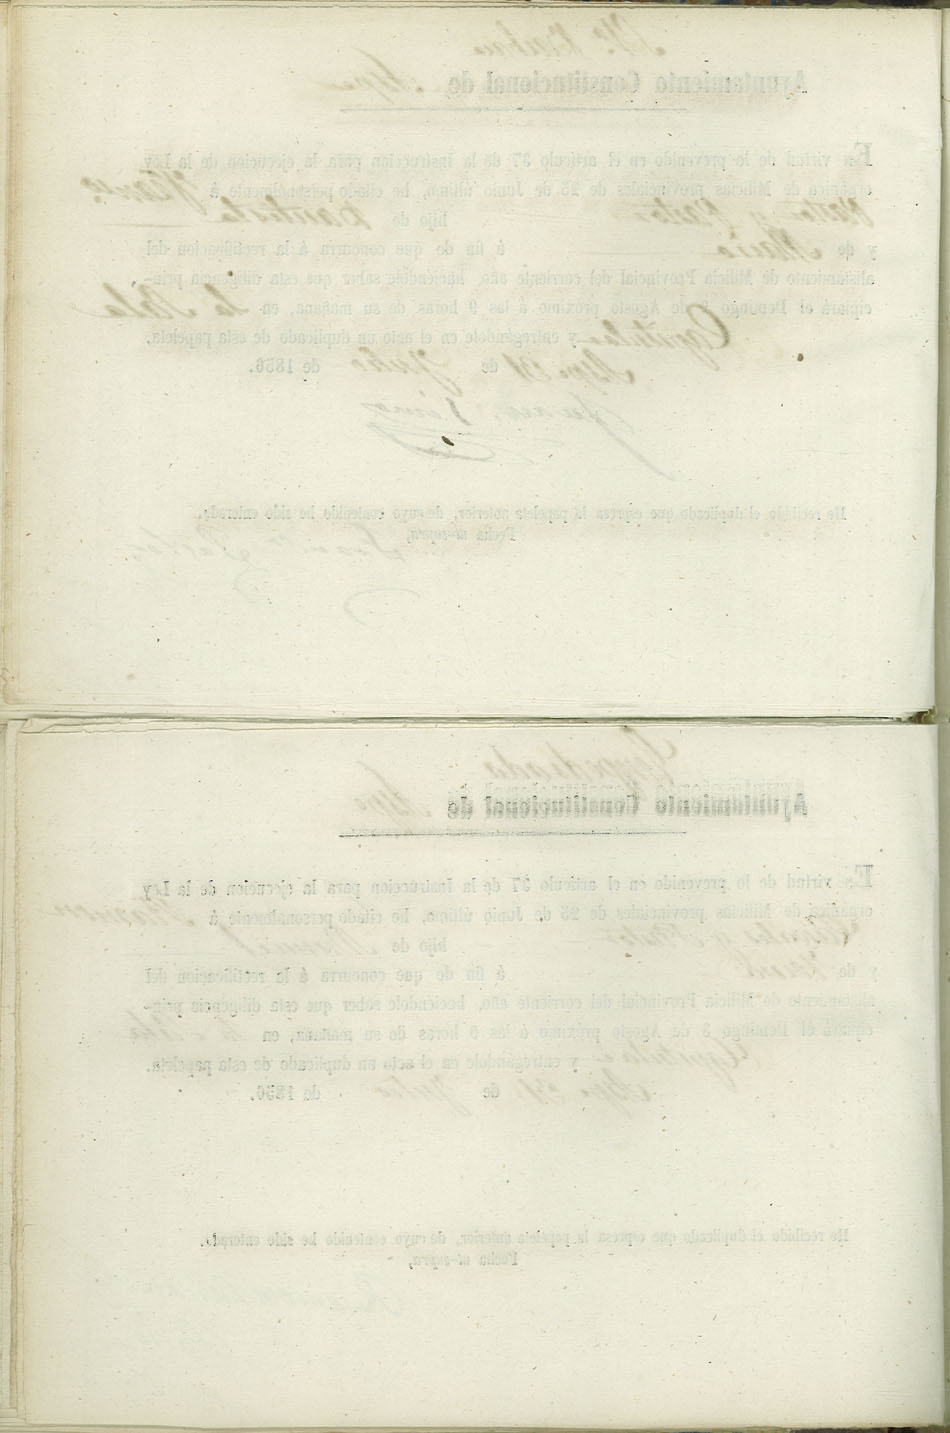 Ayuntamiento Constitucional de Aspe
En virtud de lo prevenido en el artículo 37 de la Instruccion para la ejecucion de la Ley
orgánica de Milicias provinciales de 25 de Junio último, he citado personalmente á
Pastor y Pastor hijo de Bautista
y de María á fin de que concurra á la rectificacion del
alistamiento de Milicia Provincial del corriente año, haciéndole saber que esta diligencia prin-
cipiará el Domingo 3 de Agosto próximo á las 9 horas de su mañana, en la Sala
Capitular y entregándole en el acto un duplicado de esta papeleta.
Aspe 31 de Julio de 1856.
He recibido el duplicado que espresa la papeleta anterior, de cuyo contenido he sido enterado.
Fecha ut-supra,
Ayuntamiento Constitucional de Aspe
En virtud de lo prevenido en el artículo 37 de la Instruccion para la ejecucion de la Ley
orgánica de Milicias provinciales de 25 de Junio último, he citado personalmente á
y Pastor hijo de Manuel
y de á fin de que concurra á la rectificacion del
alistamiento de Milicia Provincial del corriente año, haciéndole saber que esta diligencia prin-
cipiará el Domingo 3 de Agosto próximo á las 9 horas de su mañana, en la Sala
Capitular y entregándole en el acto un duplicado de esta papeleta.
Aspe 31 de Julio de 1856.
He recibido el duplicado que espresa la papeleta anterior, de cuyo contenido he sido enterado.
Fecha ut-supra,